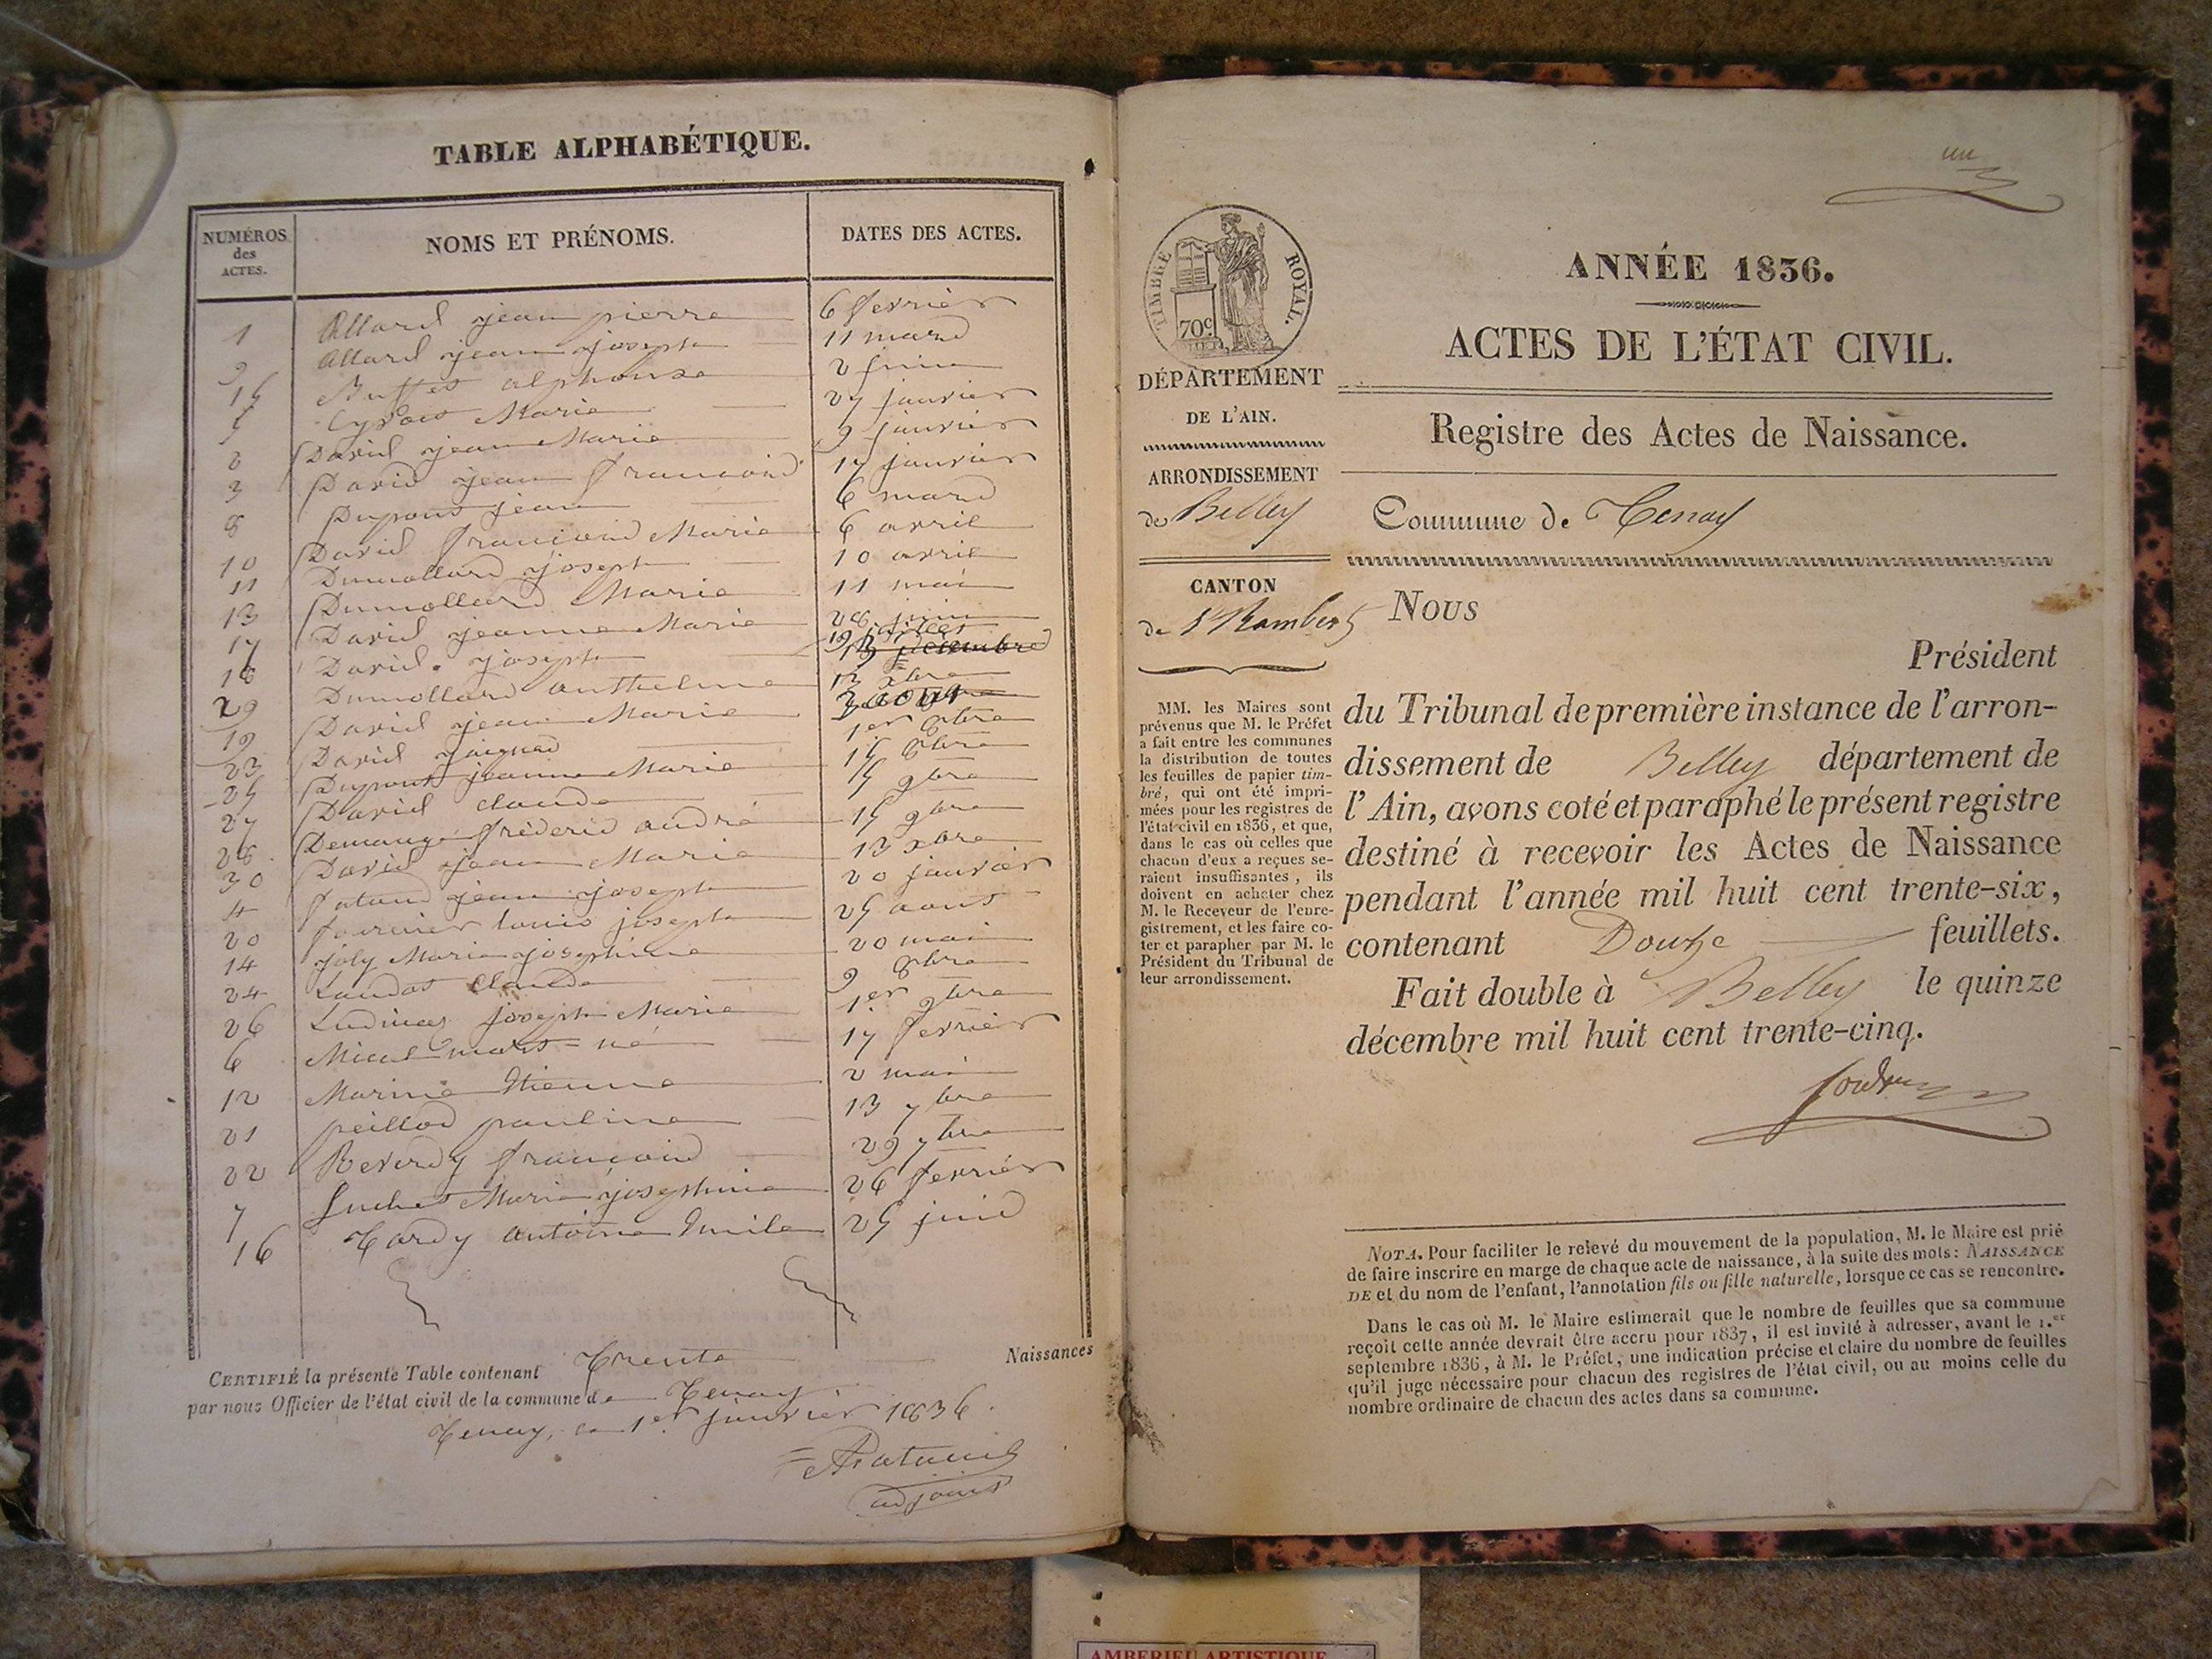 TABLE ALPHABÉTIQUE.
NUMÉROS des ACTES. NOMS ET PRÉNOMS. DATES DES ACTES.
1 Allard jean pierre 6 fevrier
9 Allard jean joseph 11 mard
15 Buffet alphonse 2 juin
5 Marie 27 janvier
2 David jean Marie 9 janvier
3 David jean francoid 17 janvier
8 Dupont jean 6 mard
10 David francoid Marie 6 avril
11 Dumollard joseph 10 avril
13 Dumollard Marie 11 mai
17 David jeanne Marie 28 juin
18 David joseph 19 juillet
29 Dumollard anthelme 13 xbre
19 David jean Marie aout
23 David 1er 8bre
25 Dupont jeanne Marie 15 8bre
27 David claude 5 9bre
28 Demange fréderid andré 15 9bre
30 David jean Marie 13 xbre
4 fatoud jean joseph 20 janvier
20 fournier louis joseph 25 aout
14 joly Marie josephine 20 mai
24 Laudat Claude 9 8bre
26 joseph Marie 1er 9bre
6 Mical mort = né 17 fevrier
12 Marine Etienne 2 mai
21 peillod pauline 13 7bre
22 Reverdy francoid 29 7bre
7 Suchet Marie josephine 26 fevrier
16 Tardy antoine Emile 25 juid
CERTIFIÉ la présente Table contenant Trente Naissances
par nous Officier de l'état civil de la commune de Tenay
Tenay, le 1er janvier 1836.
adjoint
un
TIMBRE ROYAL.
70c
DÉPARTEMENT
DE L'AIN.
ARRONDISSEMENT
de Belley
CANTON
de St Rambert
MM. les Maires sont
prévenus que M. le Préfet
a fait entre les communes
la distribution de toutes
les feuilles de papier tim-
bré, qui ont été impri-
mées pour les registres de
l'état civil en 1836, et que,
dans le cas où celles que
chacun d'eux a reçues se-
raient insuffisantes, ils
doivent en acheter chez
M. le Receveur de l'enre-
gistrement, et les faire co-
ter et parapher par M. le
Président du Tribunal de
leur arrondissement.
ANNÉE 1836.
ACTES DE L'ÉTAT CIVIL.
Registre des Actes de Naissance.
Commune de Tenay
NOUS
Président
du Tribunal de première instance de l'arron-
dissement de Belley département de
l'Ain, avons coté et paraphé le présent registre
destiné à recevoir les Actes de Naissance
pendant l'année mil huit cent trente-six,
contenant Douze feuillets.
Fait double à Belley le quinze
décembre mil huit cent trente-cinq.
NOTA. Pour faciliter le relevé du mouvement de la population, M. le Maire est prié
de faire inscrire en marge de chaque acte de naissance, à la suite des mots: NAISSANCE
DE et du nom de l'enfant, l'annotation fils ou fille naturelle, lorsque ce cas se rencontre.
Dans le cas où M. le Maire estimerait que le nombre de feuilles que sa commune
reçoit cette année devrait être accru pour 1837, il est invité à adresser, avant le 1.er
septembre 1836, à M. le Préfet, une indication précise et claire du nombre de feuilles
qu'il juge nécessaire pour chacun des registres de l'état civil, ou au moins celle du
nombre ordinaire de chacun des actes dans sa commune.
AMBERIEU ARTISTIQUE